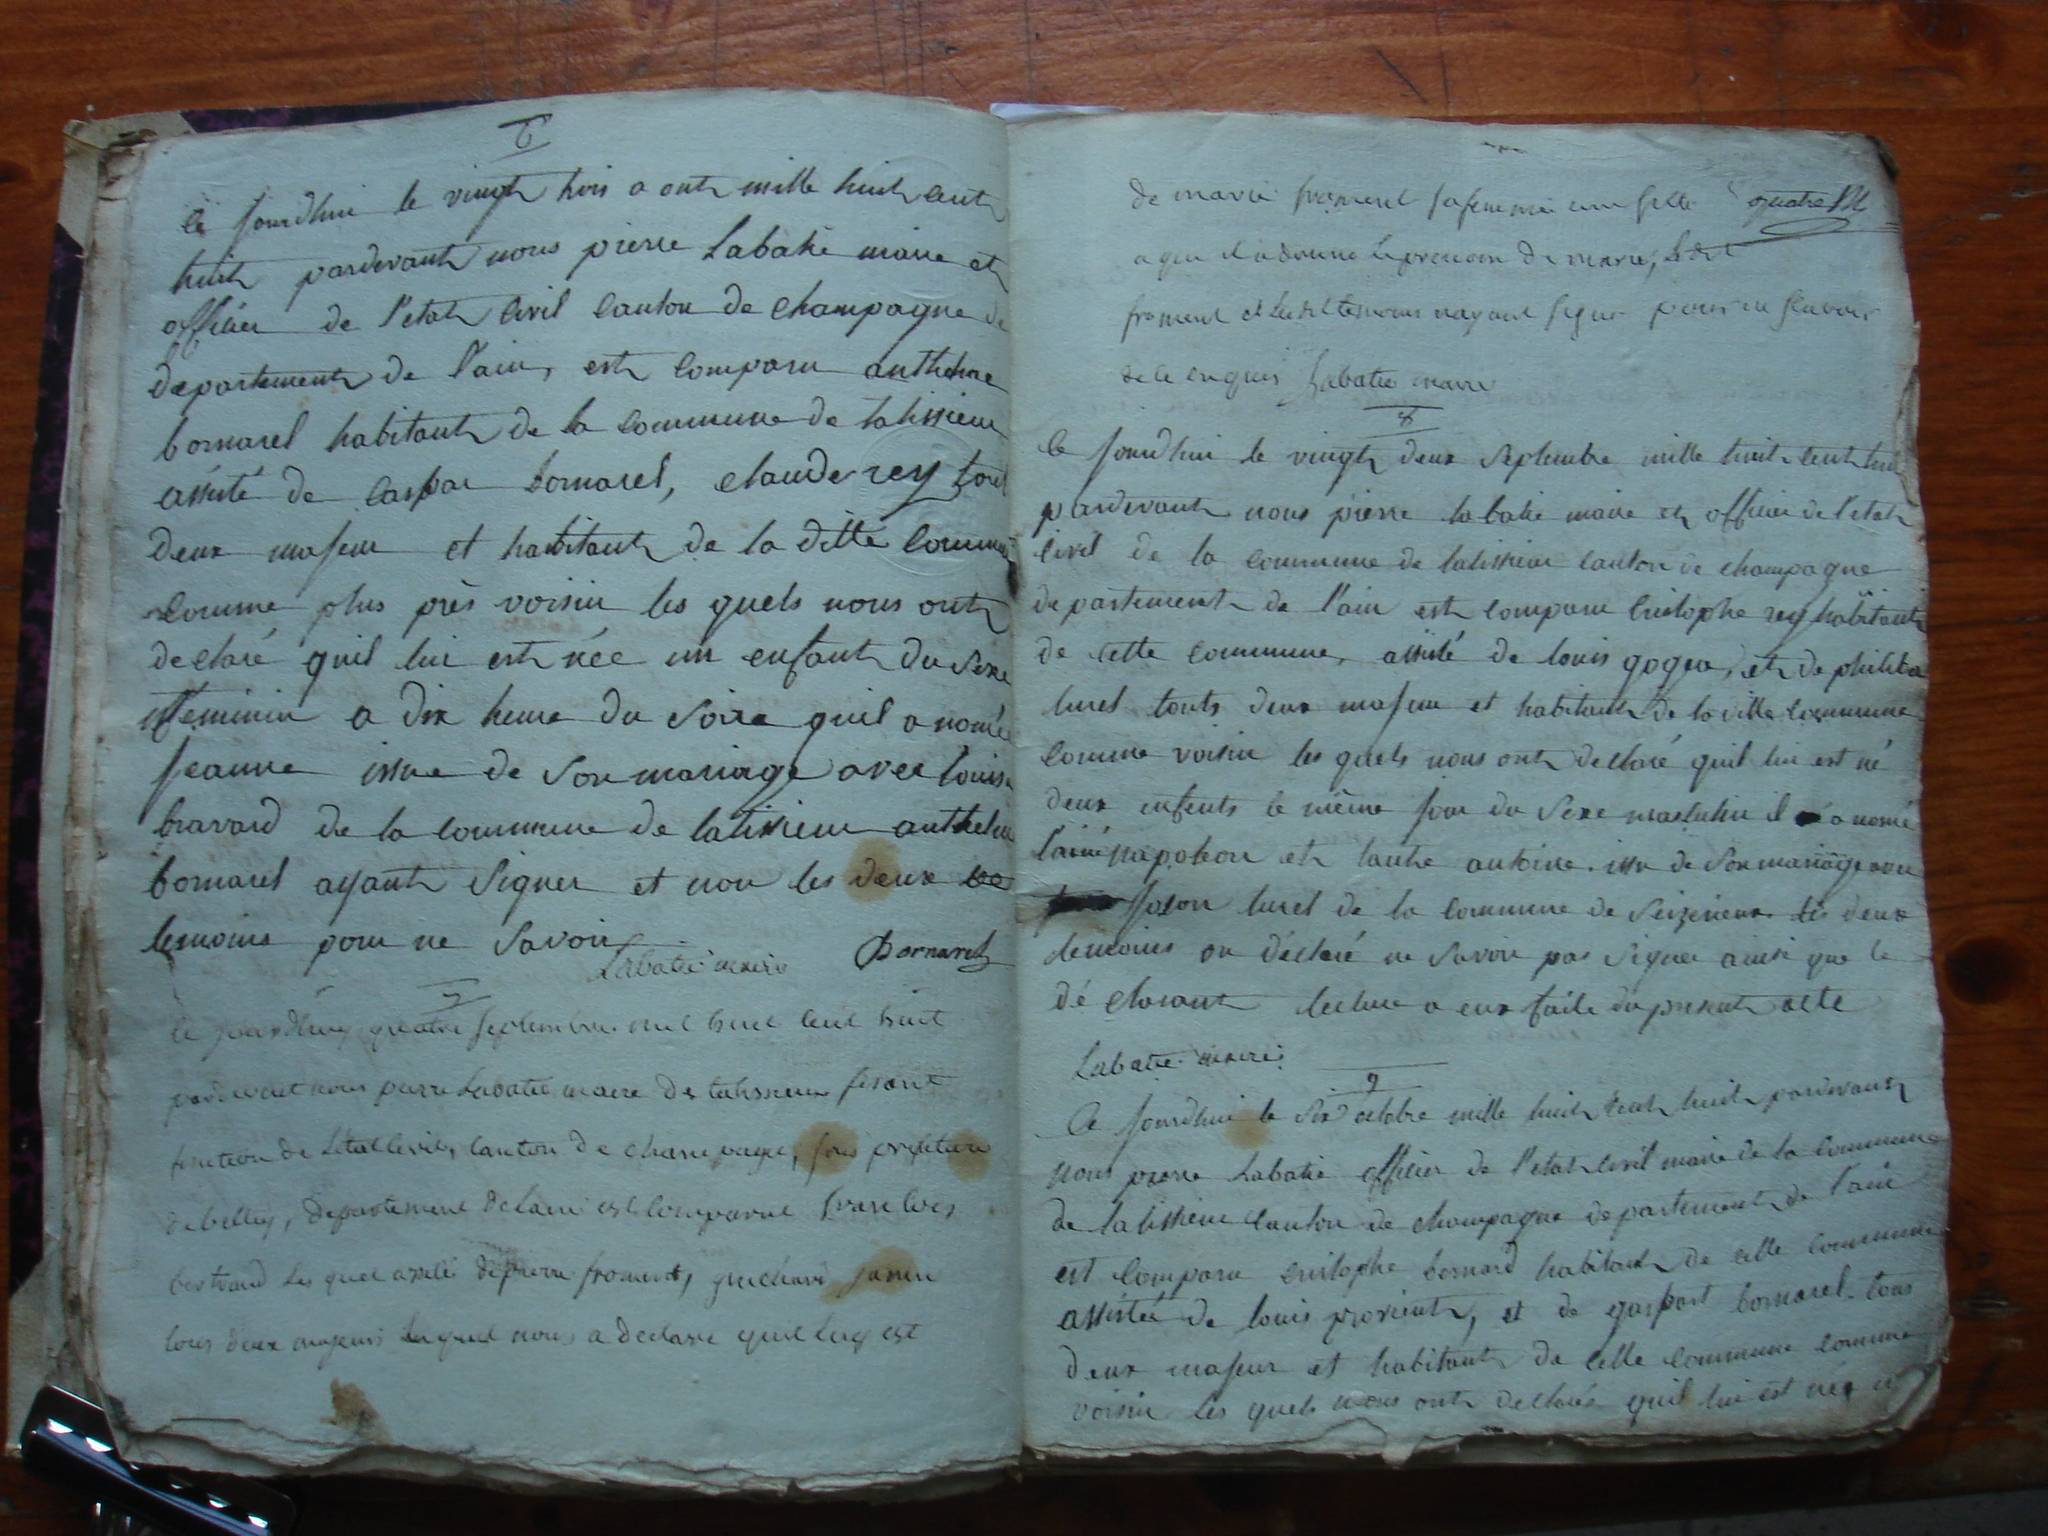 6
Ce Jourdhui le vingt trois a out mille huit cent
huit pardevant nous pierre Labatie maire et
officier de l'etat Civil Canton de Champagne de
departement de l'ain, est Comparu anthelme
bornarel habitant de la Commune de talissieu
assisté de Caspar bornarel, Claude rey tout
deux majeur et habitant de la ditte Commune
Comme plus près voisin les quels nous ont
declaré quil lui est née un enfant du Sexe
feminin a dix heure du Soire quil a nomé
Jeanne issue de Son mariage avec louise
bravard de la Commune de talissieu anthelme
bornarel ayant Signer et non les deux
temoins pour ne Savoir
Labatie maire Bornarel
7
Ce jourdhuy quatre Septembre mil huit cent huit
pardevant nous pierre Labatie maire de talissieu fesant
fonction de Letat Civil, Canton de Champagne, sous prefecture
de belley, departement de Lain est Comparut francois
bertrand Les quel assité de pierre froment, jannin
tous deux majeurs Lequel nous a declaré quil Luy est
de marie froment safemme une fille quatre
a qui il a donné Le prenom de marie, Ledit
froment et Ledit temoins nayant signé pour ne scavoir
de ce enquis Labatie maire
8
Ce Jourdhui le vingt deux Septembre mille huit cent huit
pardevant nous pierre labatie maire et officier de l'etat
Civil de la Commune de talissieu Canton de Champagne
departement de l'ain est Comparu Cristophe rey habitant
de Cette Commune, assité de louis gogue, et de philibert
turel touts deux majeur et habitant de la ditte Commune
Comme voisin les quels nous ont declaré quil lui est né
deux enfents le même jour du Sexe masculin il a nomé
l'ainé napoleon et lautre antoine issu de Son mariage avec
turel de la Commune de Seizerieux les deux
temoins on déclaré ne Savoir pas Signer ainsi que le
dé Clarant lecture a eux faite du present acte
Labatie maire
9
Ce Jourdhui le Six octobre mille huit Cent huit pardevant
nous pierre Labatie officier de l'etat Civil maire de la Commune
de talissieu Canton de Champagne departement de l'ain
est Comparu Cristophe bornard habitant de Cette Commune
assistée de louis provient, et de gaspart bornarel tous
deux majeur et habitant de Cette Commune Comme
voisin les quels nous ont declarés quil lui est née